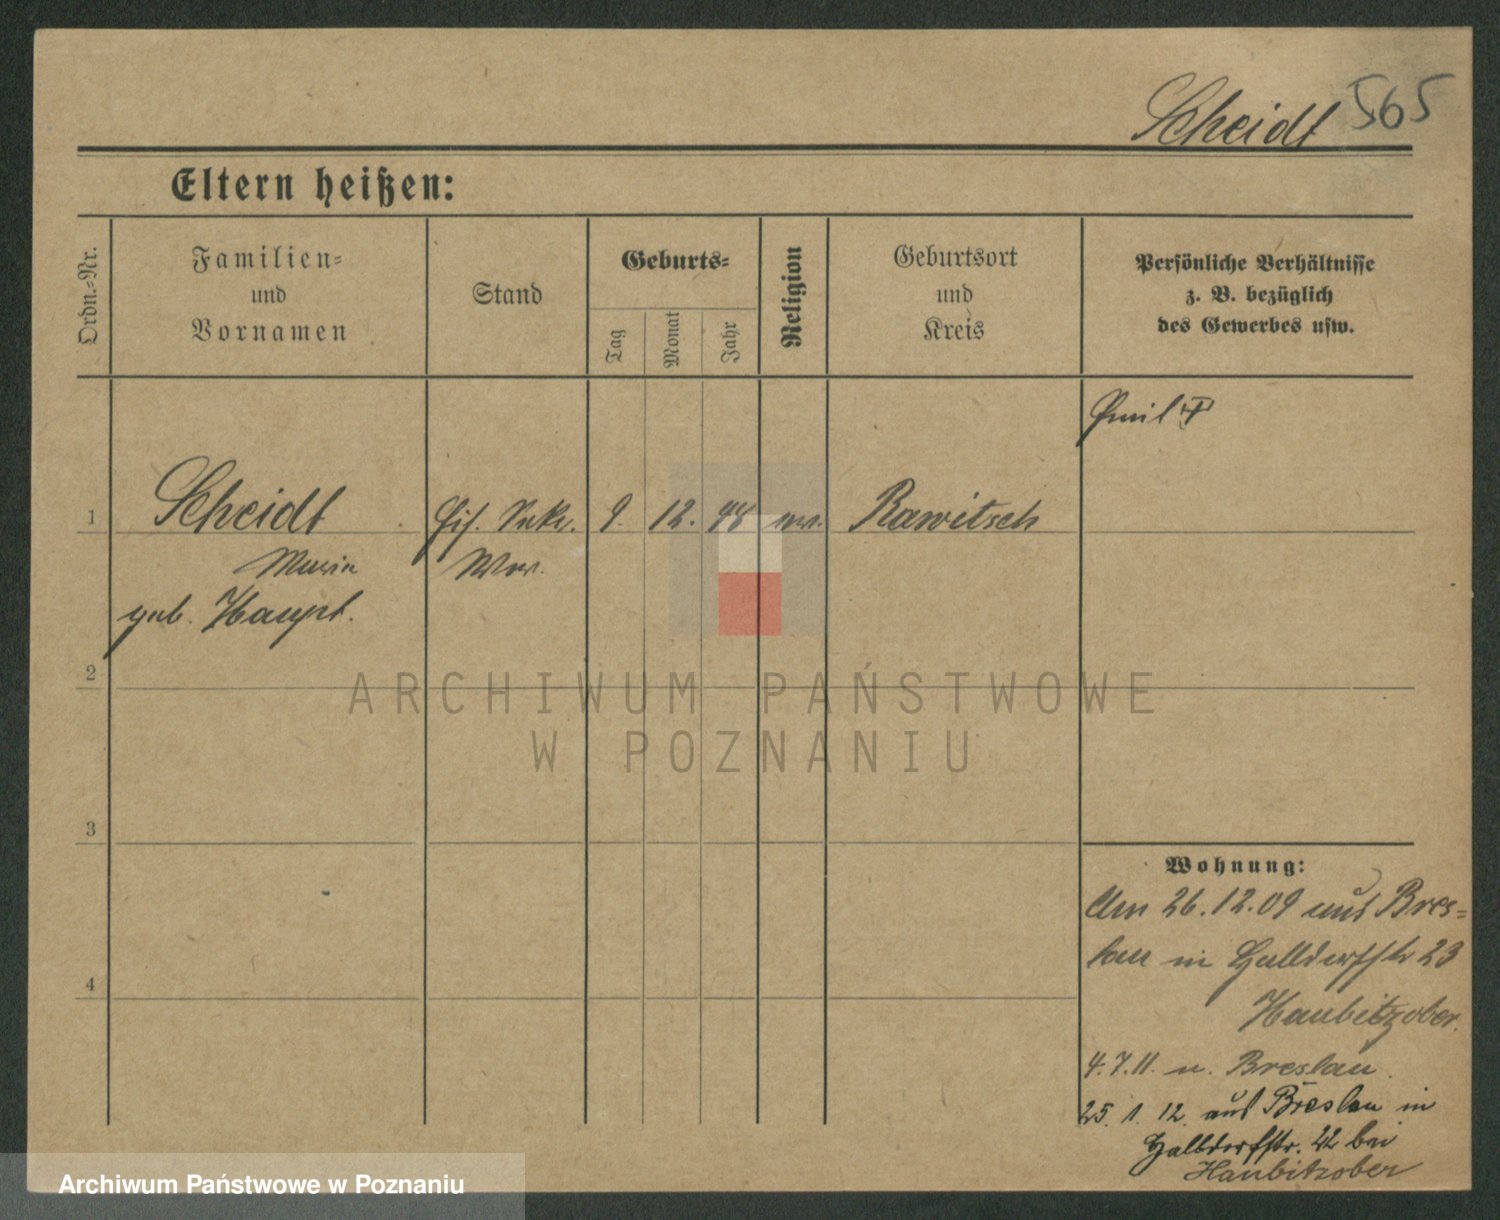 Scheidt 565
Eltern heißen:
Ordn.-Nr.
Familien-
und
Vornamen
Stand
Geburts-
Tag
Monat
Jahr
Religion
Geburtsort
und
Kreis
Persönliche Verhältnisse
z. B. bezüglich
des Gewerbes usw.
Emil
1 Scheidt 9. 12. 48 Rawitsch
Maria Wwe.
geb. Haupt.
2
ARCHIWUM PAŃSTWOWE
W POZNANIU
3
4
Wohnung:
Am 26.12.09 aus Bres-
lau in Halldorfstr 23
Haubitzober.
4.7.11. n. Breslau.
25. 1. 12. aus Breslau in
Halbdorfstr. 22 bei
Haubitzober
Archiwum Państwowe w Poznaniu